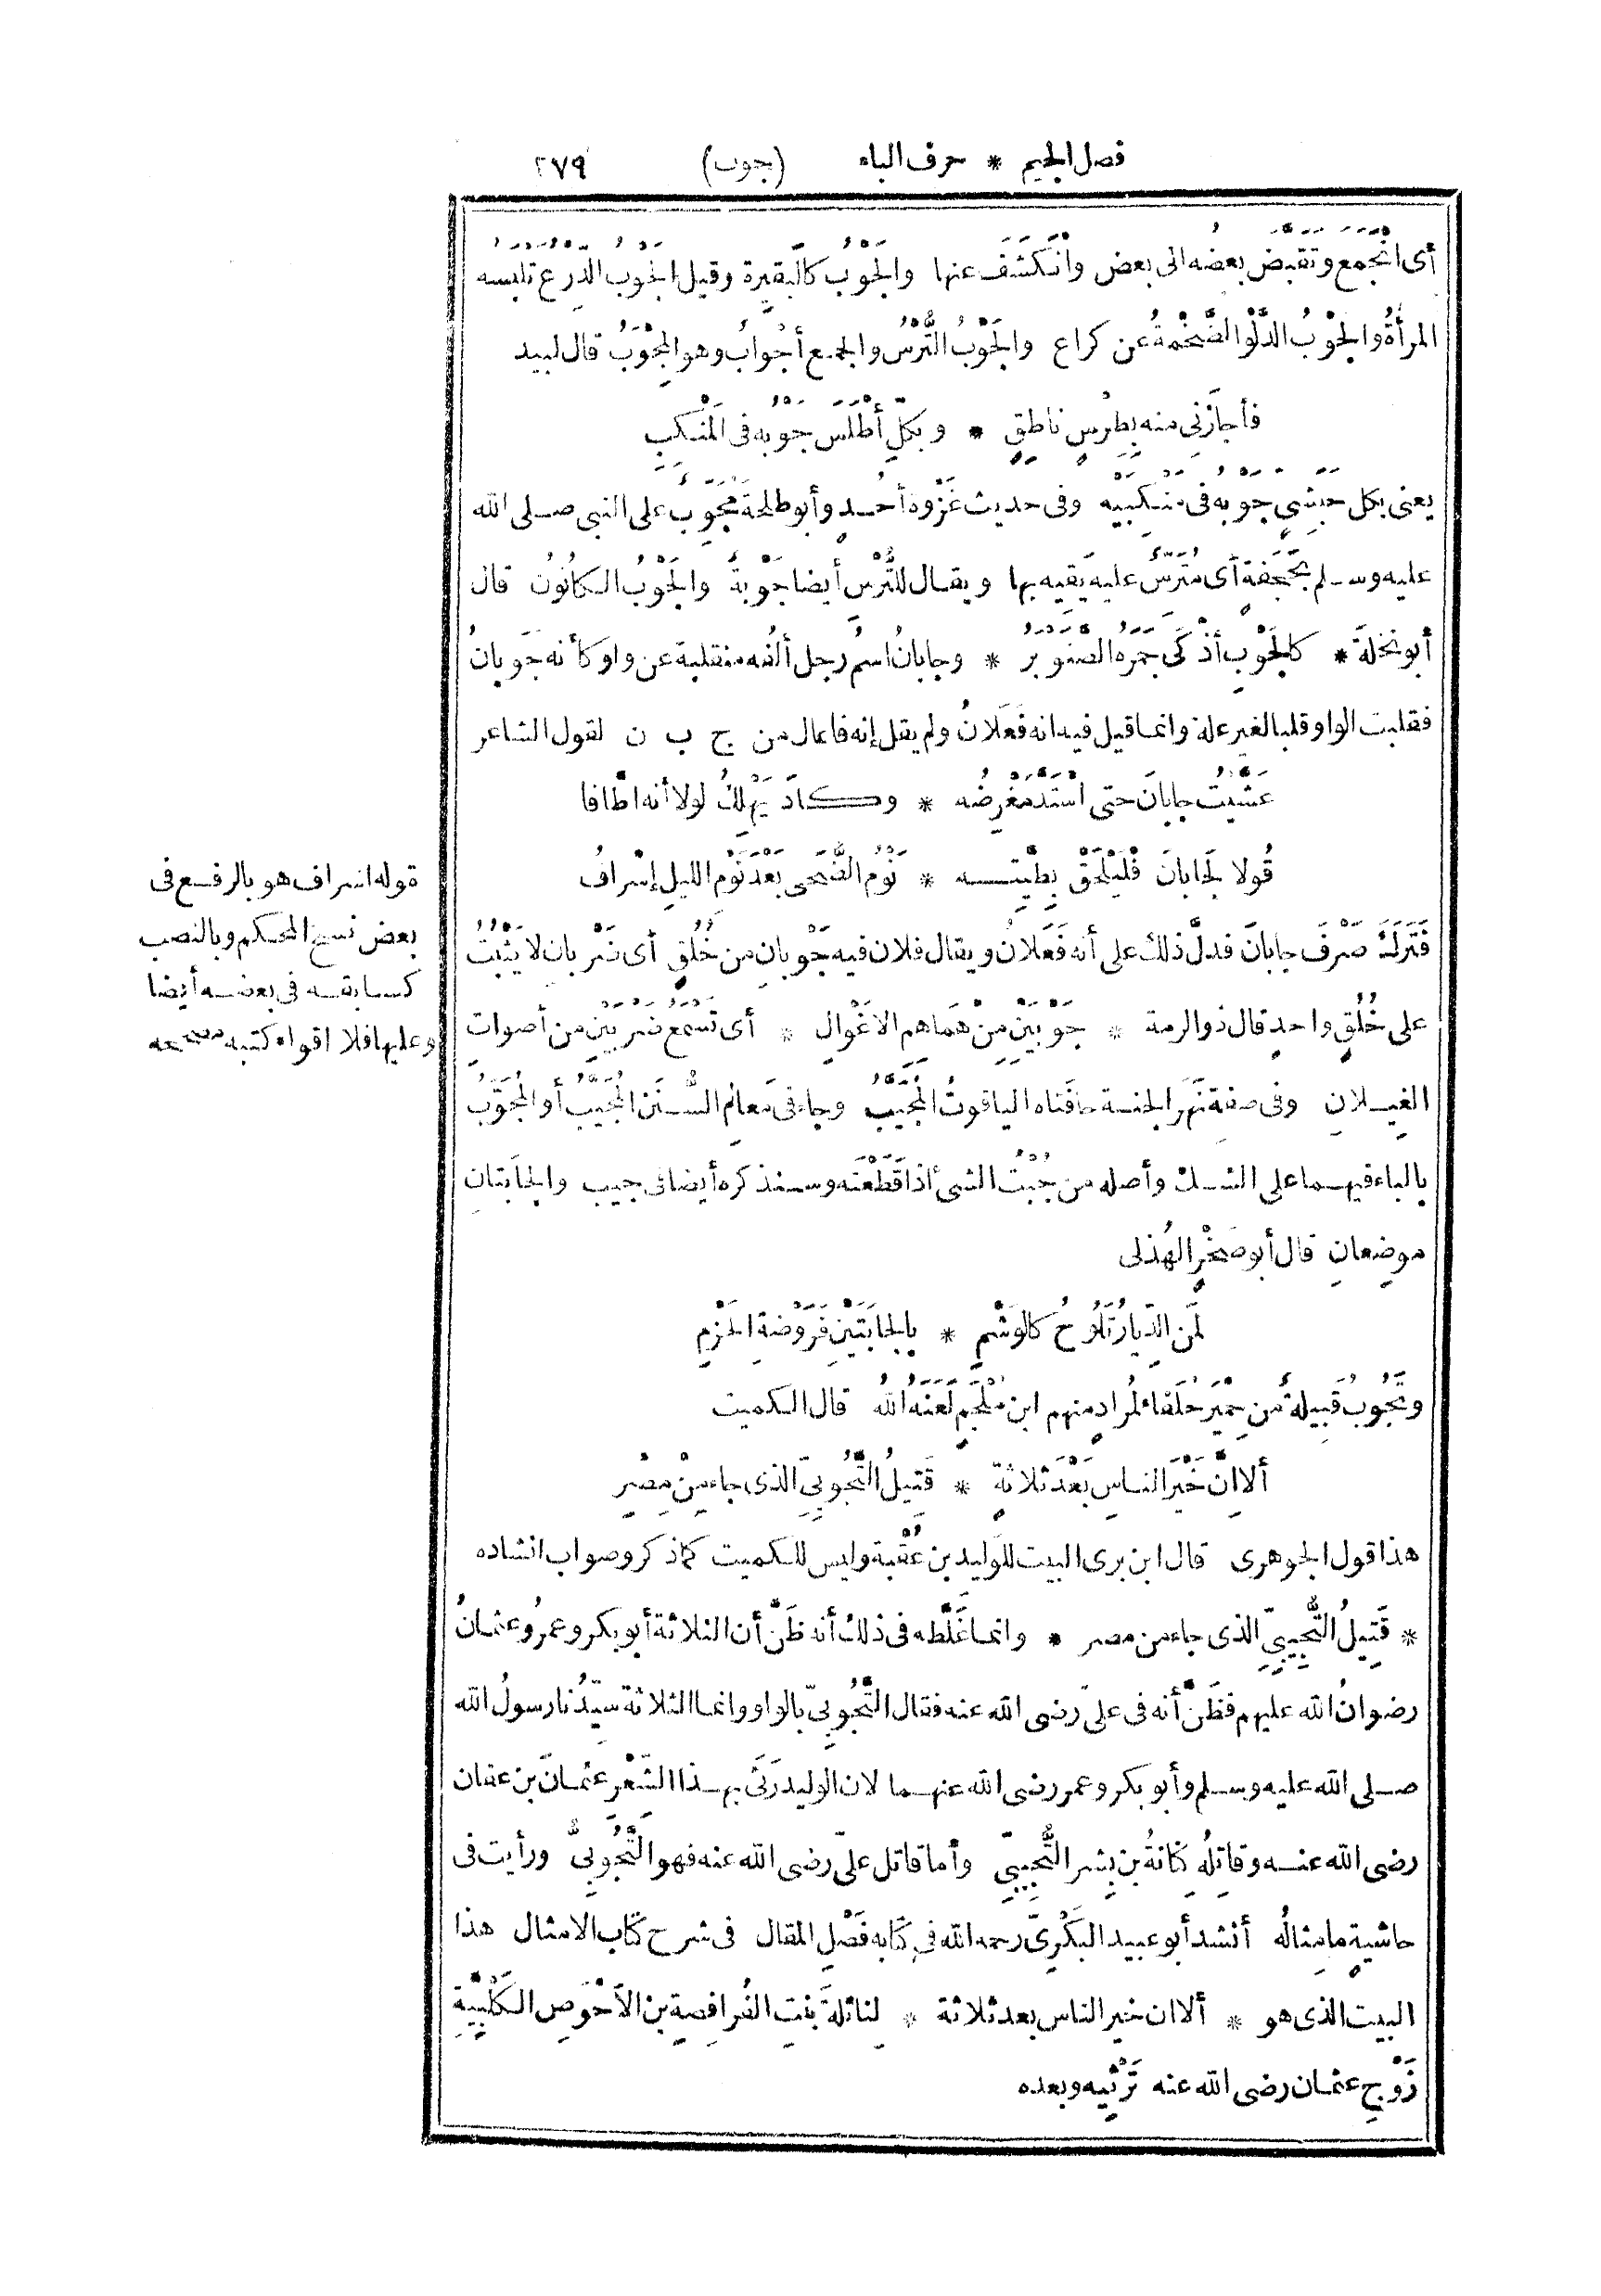 فصل الجيم * حرف الباء (جوب) ٢٧٩
أى انْجَمَع وتَقَبَّض بعضُه الى بعض وانْكَشَفَ عنها والجَوْبُ كالبَقِيرة وقيل الجَوْبُ الدِّرْعُ تَلْبَسُه
المرأةُ والجَوْبُ الدَّلْوُ الضَّخْمةُ عن كراع والجَوْبُ التُّرْسُ والجمع أجْوابٌ وهو المِجْوَبُ قال لبيد
فأجازَنِى منه بِطِرْسٍ ناطِقٍ * وبكلِّ أطْلَسَ جَوْبُه فى المَنْكِبِ
يعنى بكل حَبَشِىٍّ جَوْبُه فى مَنْكِبَيْه وفى حديث غَزْوة أُحُدٍ وأبو طلحةَ مُجَوِّبٌ على النبى صلى الله
عليه وسلم بحَجَفةٍ أى مُتَرِّسٌ عليه يَقِيه بها ويقال للتُّرْسِ أيضا جَوْبةٌ والجَوْبُ الكانُونُ قال
أبو نخلةَ * كالجَوْبِ أذْكَى جَمْرَه الصَّنَوْبَرُ * وجابانُ اسمُ رجل ألفُه منقلبة عن واو كأنه جَوَبانُ
فقلبت الواو قلبا لغير علة وانما قيل فيه انه فَعَلانُ ولم يقل إنه فاعال من ج ب ن لقول الشاعر
عَشَّيْتُ جابانَ حتى اسْتَدَّ مَغْرِضُه * وكادَ يَهْلِكُ لولا أنه اطَّافا
قُولا لجَابانَ فَلْيَلْحَقْ بِطِيَّتِه * نَوْمُ الضُّحَى بَعْدَ نَوْمِ الليلِ إسْرافُ
فَتَرَكَ صَرْفَ جابانَ فدلَّ ذلك على أنه فَعَلانُ ويقال فلان فيه جَوْبانِ من خُلُقٍ أى ضَرْبان لا يَثْبُتُ
على خُلُقٍ واحدٍ قال ذو الرمة * جَوْبَيْنِ مِنْ هَماهِمِ الاغْوالِ * أى تَسْمَعُ ضَرْبَيْنِ من أصوات
الغِيلانِ وفى صفة نَهَرِ الجنة حافَتاه الياقوتُ المُجَيَّبُ وجاء فى مَعالِم السُّنَنِ المُجَيَّبُ أو المُجَوَّبُ
بالباء فيهما على الشك وأصله من جُبْتُ الشىء اذا قَطَعْتَه وسنذكره أيضا فى جيب والجابَتانِ
موضِعانِ قال أبو صَخْرٍ الهُذلى
لِمَنِ الدِّيارُ تَلُوحُ كالوَشْمِ * بالجابَتَيْنِ فَرَوْضةِ الحَزْمِ
وتَجُوبُ قَبِيلةٌ مِن حِمْيَر حُلَفاء لمُرادٍ منهم ابن مُلْجَمٍ لَعَنَه اللهُ قال الكميت
ألا إنَّ خَيْرَ الناسِ بَعْدَ ثلاثةٍ * قَتِيلُ التَّجُوبِىِّ الذى جاء مِنْ مِصْرِ
هذا قول الجوهرى قال ابن برى البيت للوليد بن عُقْبة وليس للكميت كما ذكر وصواب انشاده
* قَتِيلُ التُّجِيبِىِّ الذى جاء من مصر * وانما غَلَّطه فى ذلك أنه ظَنَّ أن الثلاثة أبو بكر وعمرُ وعثمانُ
رضوانُ الله عليهم فظَنَّ أنه فى علىّ رضى الله عنه فقال التَّجُوبِىّ بالواو وانما الثلاثة سيِّدُنا رسولُ الله
صلى الله عليه وسلم وأبو بكر وعمر رضى الله عنهما لان الوليد رَثَى بهذا الشِّعْرِ عثمانَ بن عفان
رضى الله عنه وقاتِلُه كِنانةُ بن بِشر التُّجِيبِىّ وأما قاتل علىّ رضى الله عنه فهو التَّجُوبِىُّ ورأيت فى
حاشيةٍ ما مِثالُه أنشد أبو عبيد البَكْرِىّ رحمه الله فى كتابه فَصْلِ المقال فى شرح كتاب الامثال هذا
البيت الذى هو * ألا ان خير الناس بعد ثلاثة * لِنائلةَ بنتِ الفُرافِصةِ بن الاَحْوَصِ الكَلْبِيَّةِ
زَوْجِ عثمان رضى الله عنه تَرْثِيه وبعده
قوله اسراف هو بالرفع فى
بعض نسخ المحكم وبالنصب
كسابقه فى بعضه أيضا
وعليها فلا اقواء كتبه مصححه